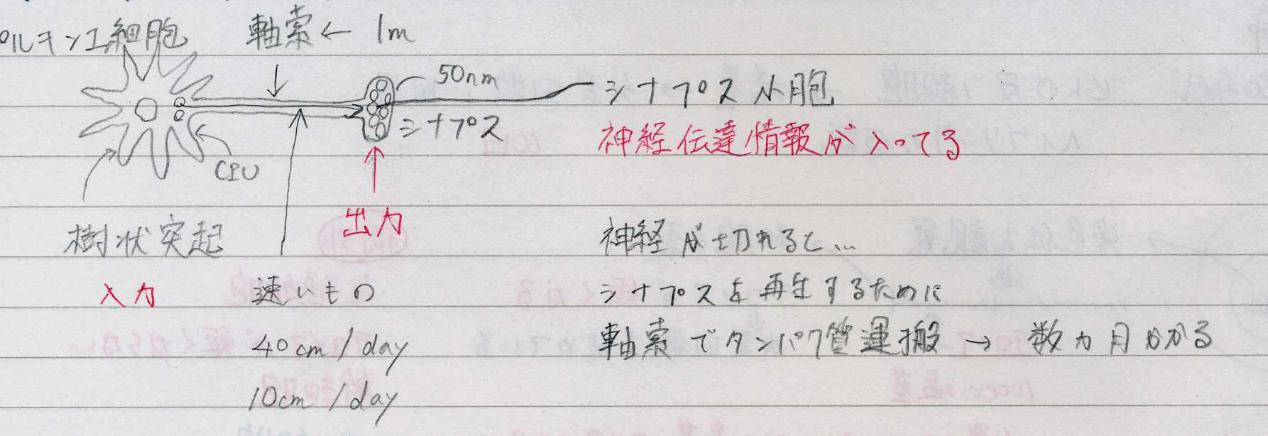 プルキンエ細胞
軸索 ← 1m
50nm
シナプス小胞
シナプス
神経伝達情報が入ってる
CPU
出力
樹状突起
入力
速いもの
40cm/day
10cm/day
神経が切れると...
シナプスを再生するために
軸索でタンパク質運搬 → 数カ月かかる